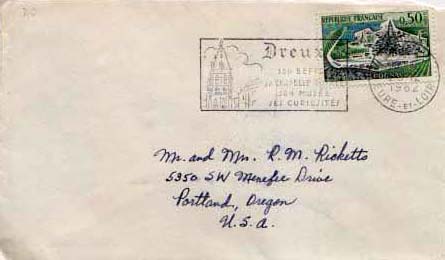 RÉPUBLIQUE FRANÇAISE 0,50
Dreux
SON BEFFROI
SA CHAPELLE
SON MUSÉE
SES CURIOSITÉS
1962
EURE-ET-LOIR
Mr. and Mrs. R. M. Ricketts
5350 SW Menefee Drive
Portland, Oregon
U.S.A.